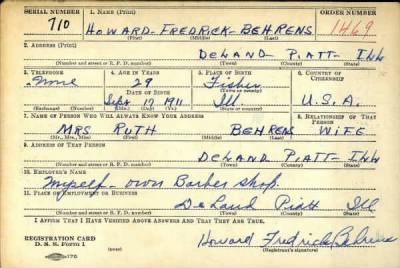 SERIAL NUMBER 1. NAME (Print) ORDER NUMBER
710 HOWARD-FREDRICK-BEHRENS 1469
(First) (Middle) (Last)
2. ADDRESS (Print)
DELAND PIATT-ILL
(Number and street or R. F. D. number) (Town) (County) (State)
3. TELEPHONE 4. AGE IN YEARS 5. PLACE OF BIRTH 6. COUNTRY OF CITIZENSHIP
None 29 Fisher
DATE OF BIRTH (Town or county)
Sept 17 1911 Ill. U.S.A.
(Exchange) (Number) (Mo.) (Day) (Yr.) (State or country)
7. NAME OF PERSON WHO WILL ALWAYS KNOW YOUR ADDRESS 8. RELATIONSHIP OF THAT PERSON
MRS RUTH BEHRENS WIFE
(Mr., Mrs., Miss) (First) (Middle) (Last)
9. ADDRESS OF THAT PERSON
DELAND PIATT-ILL
(Number and street or R. F. D. number) (Town) (County) (State)
10. EMPLOYER'S NAME
Myself - own Barber shop.
11. PLACE OF EMPLOYMENT OR BUSINESS
DeLand Piatt Ill
(Number and street or R. F. D. number) (Town) (County) (State)
I AFFIRM THAT I HAVE VERIFIED ABOVE ANSWERS AND THAT THEY ARE TRUE.
REGISTRATION CARD Howard Fredrick Behrens
D. S. S. Form 1 (Registrant's signature)